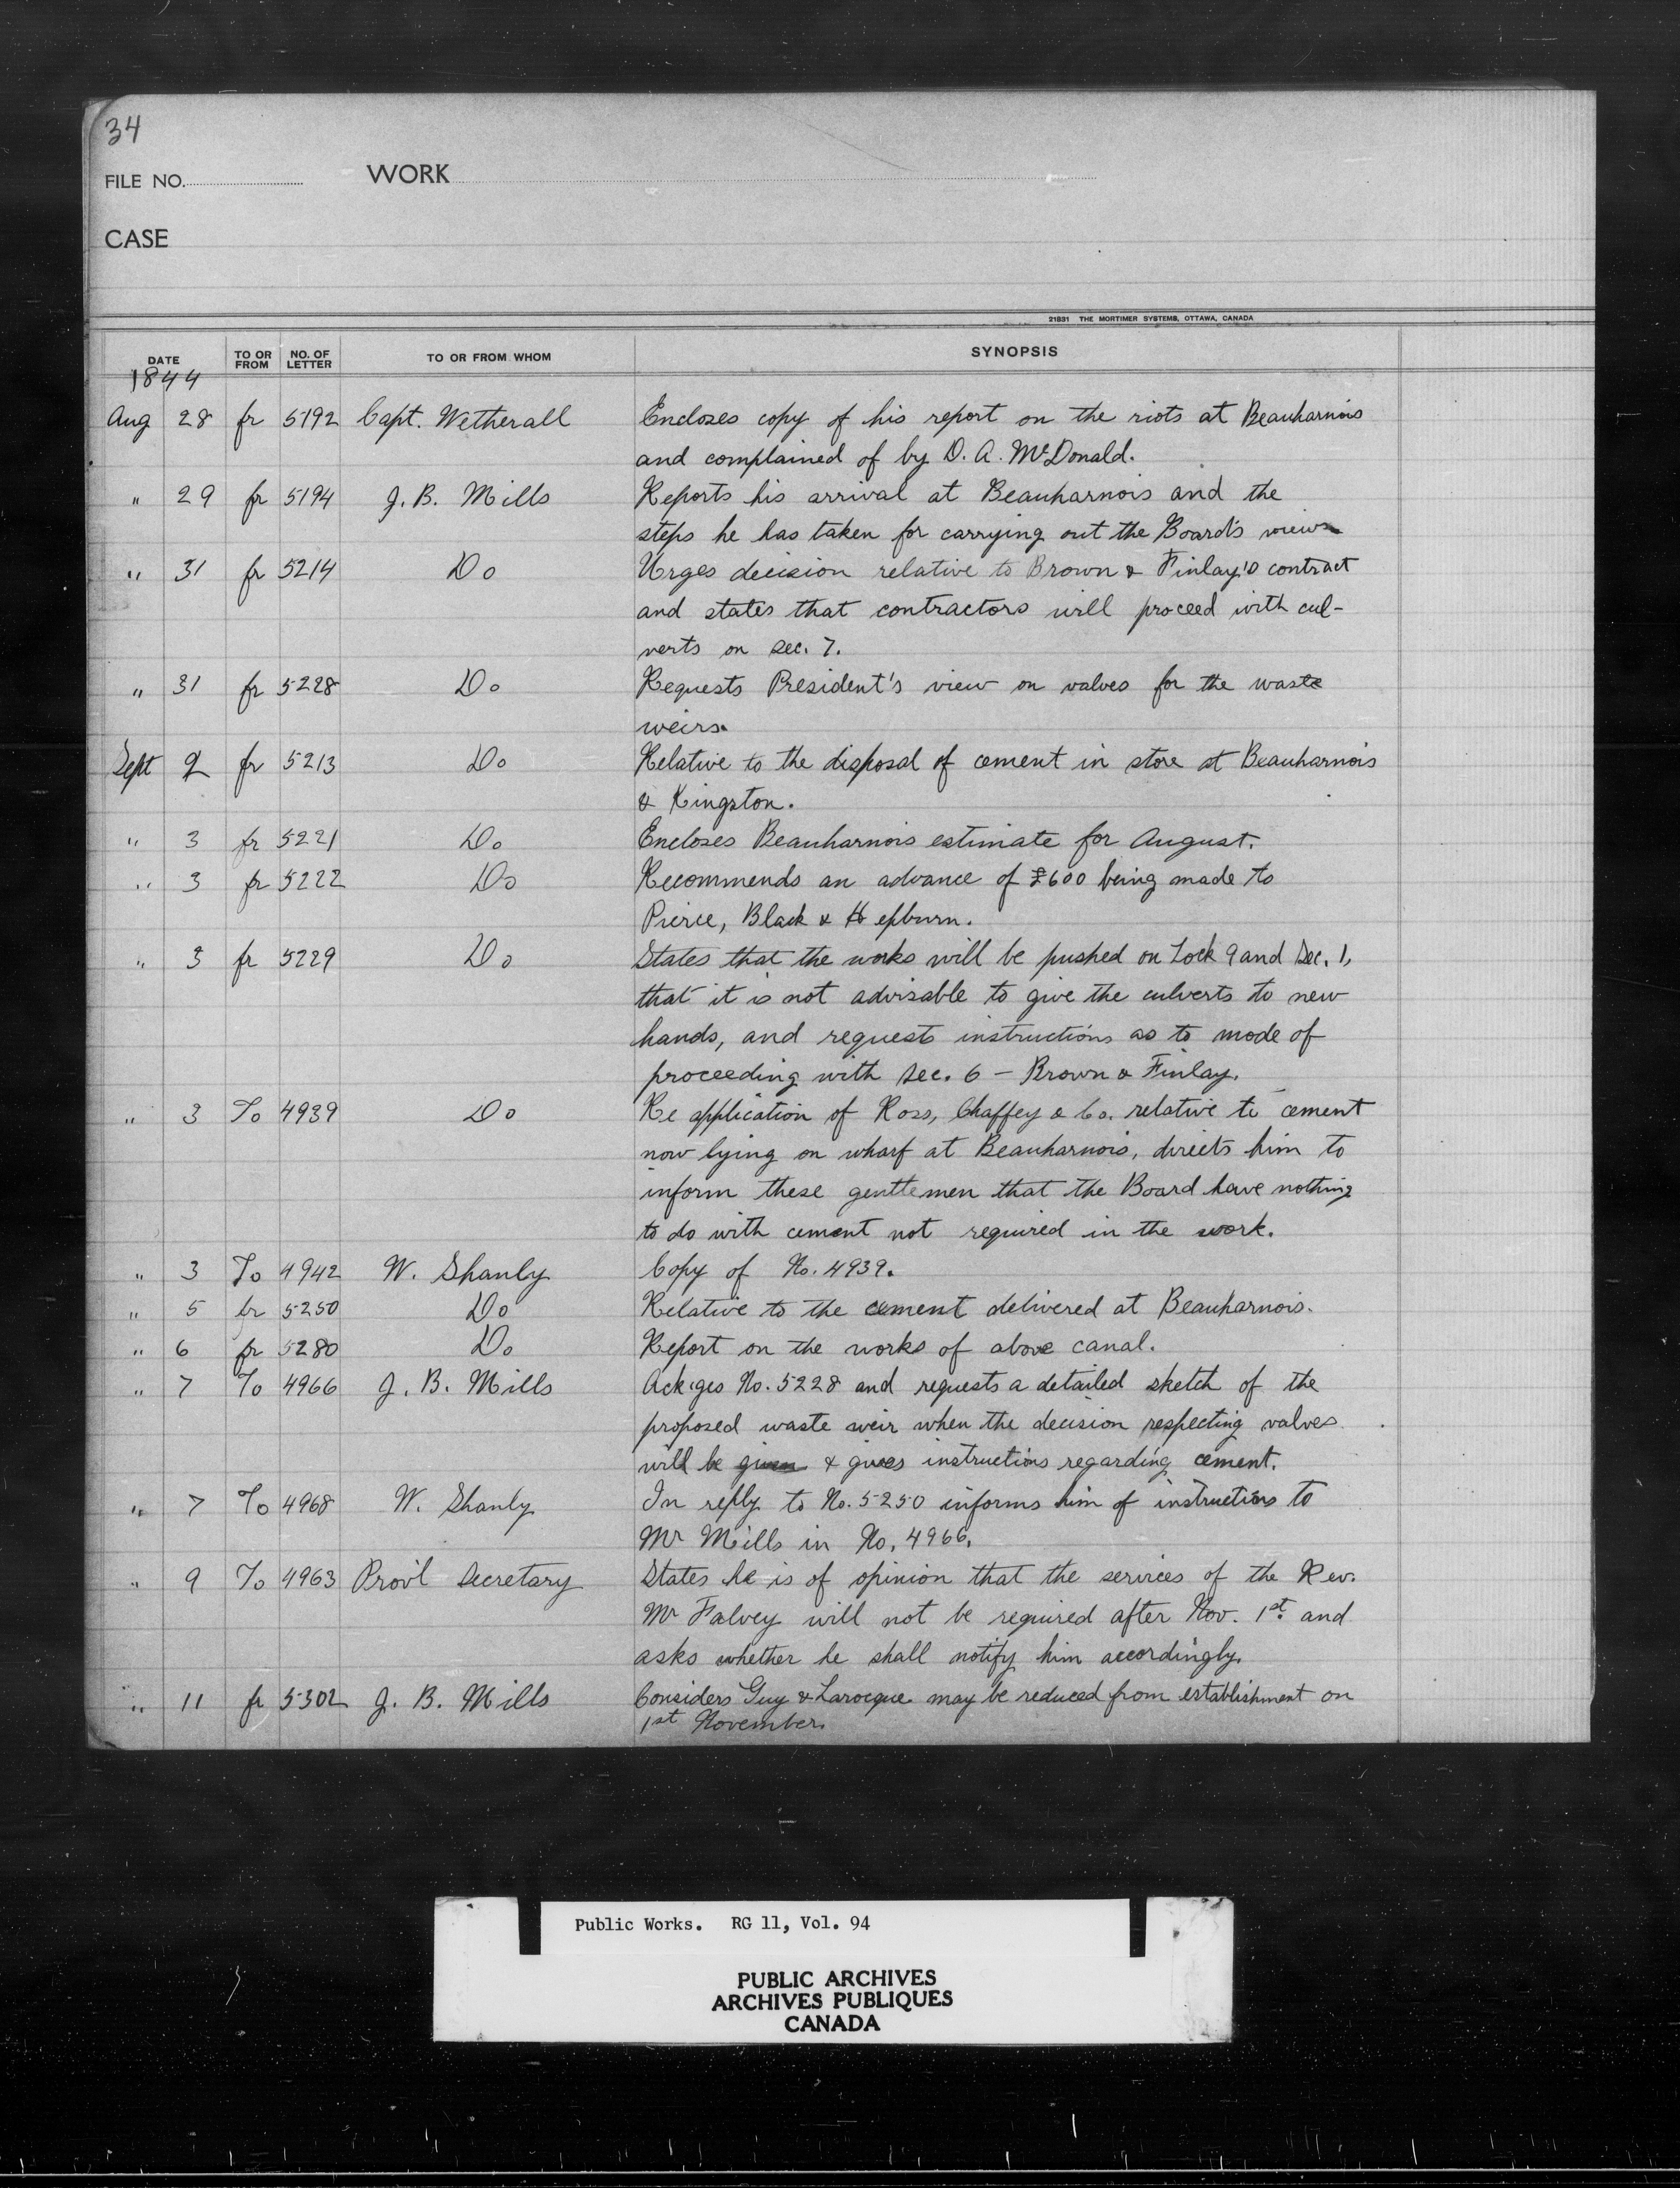 34
FILE NO. WORK
CASE
21831 THE MORTIMER SYSTEMS, OTTAWA, CANADA
DATE TO OR FROM NO. OF LETTER TO OR FROM WHOM SYNOPSIS
1844
Aug 28 fr 5192 Capt. Wetherall Encloses copy of his report on the riots at Beauharnois
and complained of by D. A. McDonald.
" 29 fr 5194 J. B. Mills Reports his arrival at Beauharnois and the
steps he has taken for carrying out the Board's views
" 31 fr 5214 Do Urges decision relative to Brown & Finlay's contract
and states that contractors will proceed with cul-
verts on sec. 7.
" 31 fr 5228 Do Requests President's view on valves for the waste
weirs.
Sept 2 fr 5213 Do Relative to the disposal of cement in store at Beauharnois
& Kingston.
" 3 fr 5221 Do Encloses Beauharnois estimate for August.
" 3 fr 5222 Do Recommends an advance of £600 being made to
Pierce, Black & Hepburn.
" 3 fr 5229 Do States that the works will be pushed on Lock 9 and Sec. 1,
that it is not advisable to give the culverts to new
hands, and requests instructions as to mode of
proceeding with sec. 6 - Brown & Finlay.
" 3 To 4939 Do Re application of Ross, Chaffey & Co. relative to cement
now lying on wharf at Beauharnois, directs him to
inform these gentlemen that the Board have nothing
to do with cement not required in the work.
" 3 To 4942 W. Shanly Copy of No. 4939.
" 5 fr 5250 Do Relative to the cement delivered at Beauharnois.
" 6 fr 5280 Do Report on the works of above canal.
" 7 To 4966 J. B. Mills Ack'ges No. 5228 and requests a detailed sketch of the
proposed waste weir when the decision respecting valves
will be given & gives instructions regarding cement.
" 7 To 4968 W. Shanly In reply to No. 5250 informs him of instructions to
Mr Mills in No. 4966.
" 9 To 4963 Prov'l Secretary States he is of opinion that the services of the Rev.
Mr Falvey will not be required after Nov. 1st. and
asks whether he shall notify him accordingly.
" 11 fr 5302 J. B. Mills Considers Guy & Larocque may be reduced from establishment on
1st November.
Public Works. RG 11, Vol. 94
PUBLIC ARCHIVES
ARCHIVES PUBLIQUES
CANADA